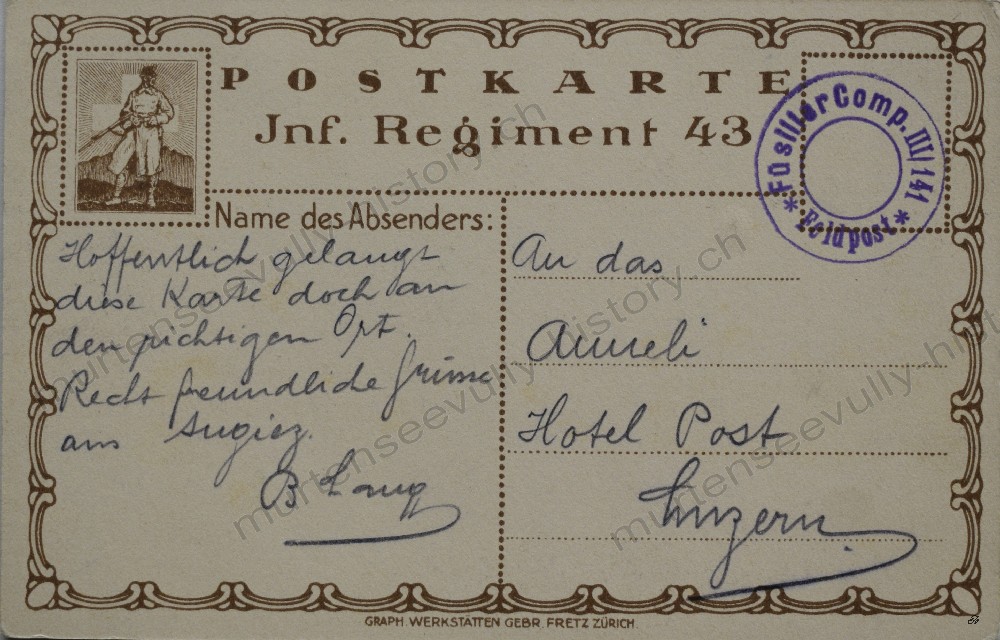 POSTKARTE
Jnf. Regiment 43
Füsilier Comp. III/141
* Feldpost *
Name des Absenders:
Hoffentlich gelangt
diese Karte doch an
den richtigen Ort.
Recht freundliche Grüsse
aus Sugiez.
B Lang
An das
Anneli
Hotel Post
Luzern.
GRAPH. WERKSTÄTTEN GEBR. FRETZ ZÜRICH.
murtenseevully-history.ch
murtenseevully-history.ch
murtenseevully-history.ch